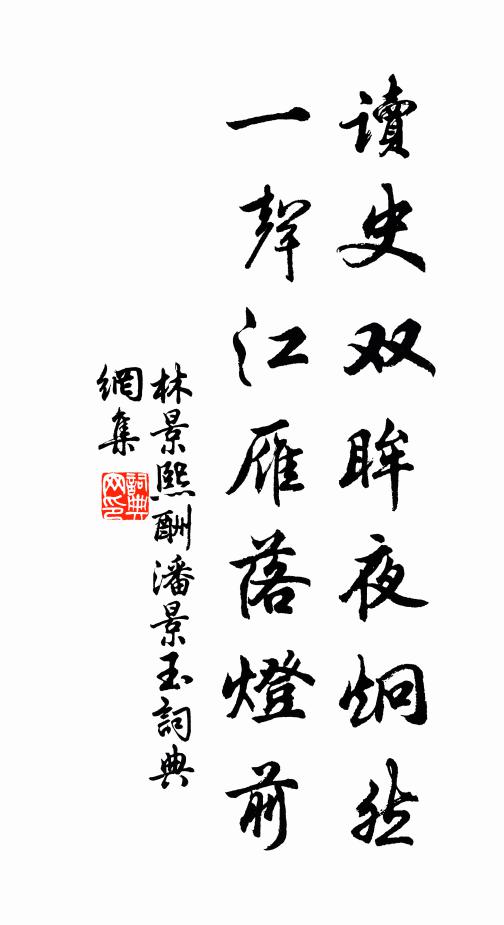 讀史双眸夜炯然
一聲江雁落燈前
林景熙酬潘景玉詞典
網集
詞典
网印